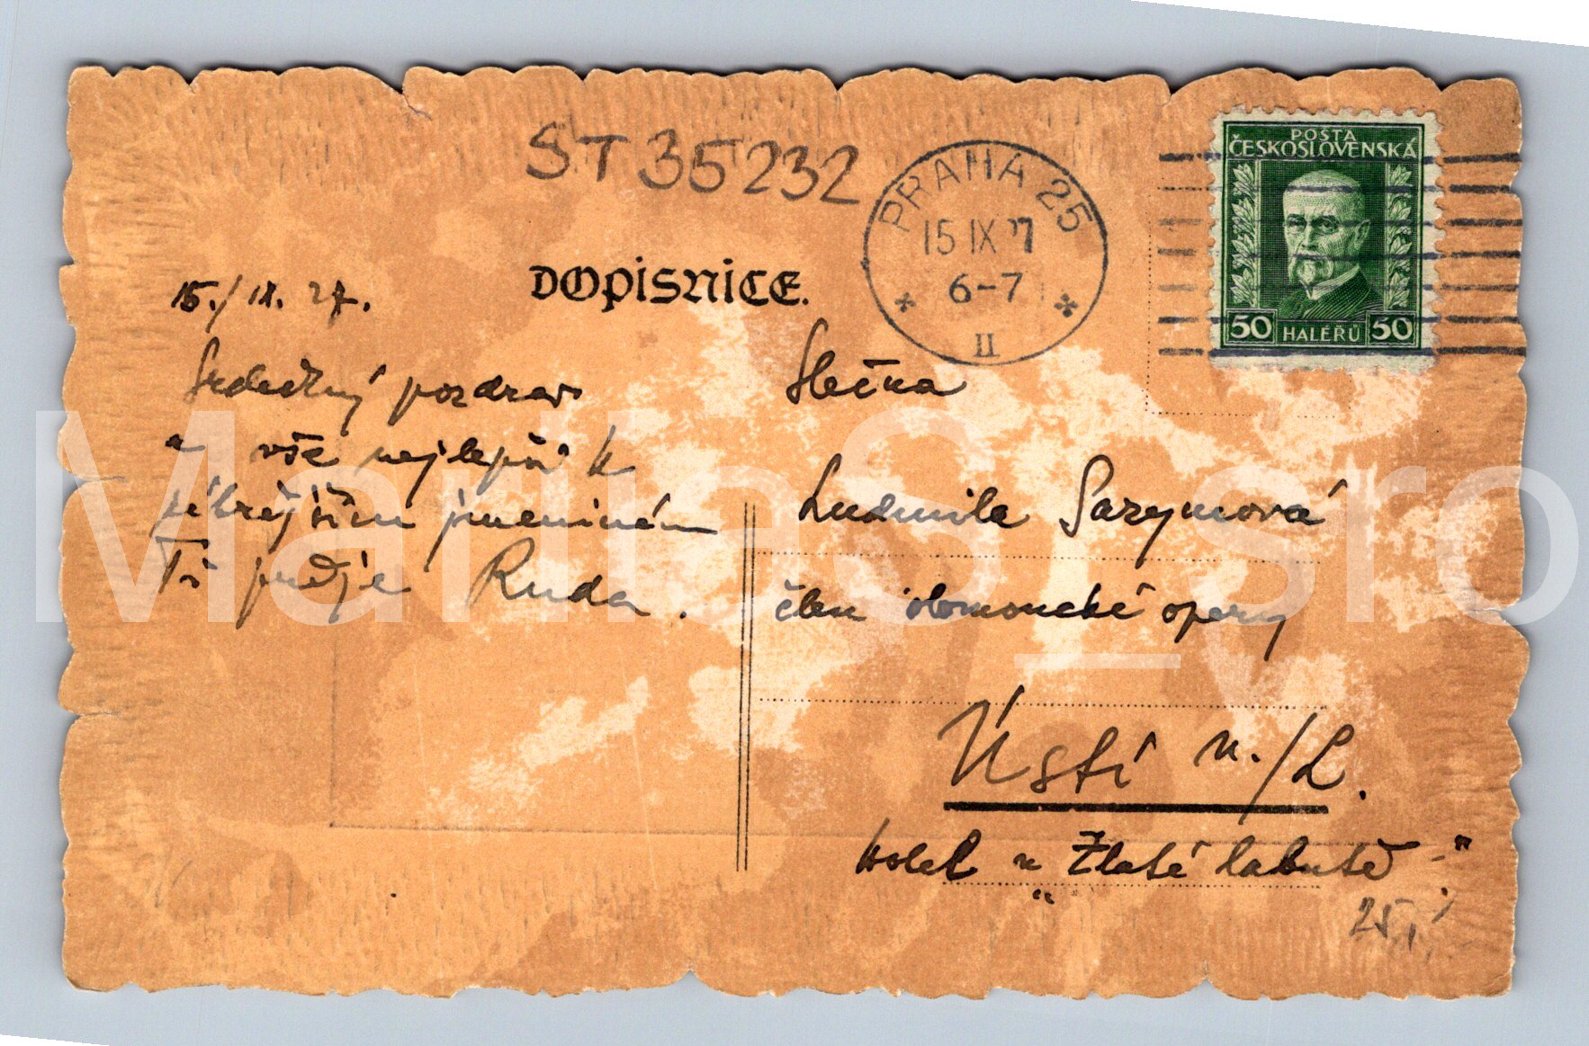 ST 35232
PRAHA 25
15 IX 27
6-7
II
POŠTA
ČESKOSLOVENSKÁ
50 HALÉŘŮ 50
DOPISNICE.
15./IX. 27.
Srdečný pozdrav
a vše nejlepší k
zítřejším jmeninám
Ti přeje Ruda.
Slečna
Ludmila Sazymová
člen olomoucké opery
Ústí n./L.
hotel u „Zlaté labutě"
25,-
MarticS_sro